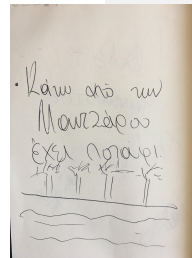 Κάτω από την
Μαντζάρου
έχει ποτάμι.